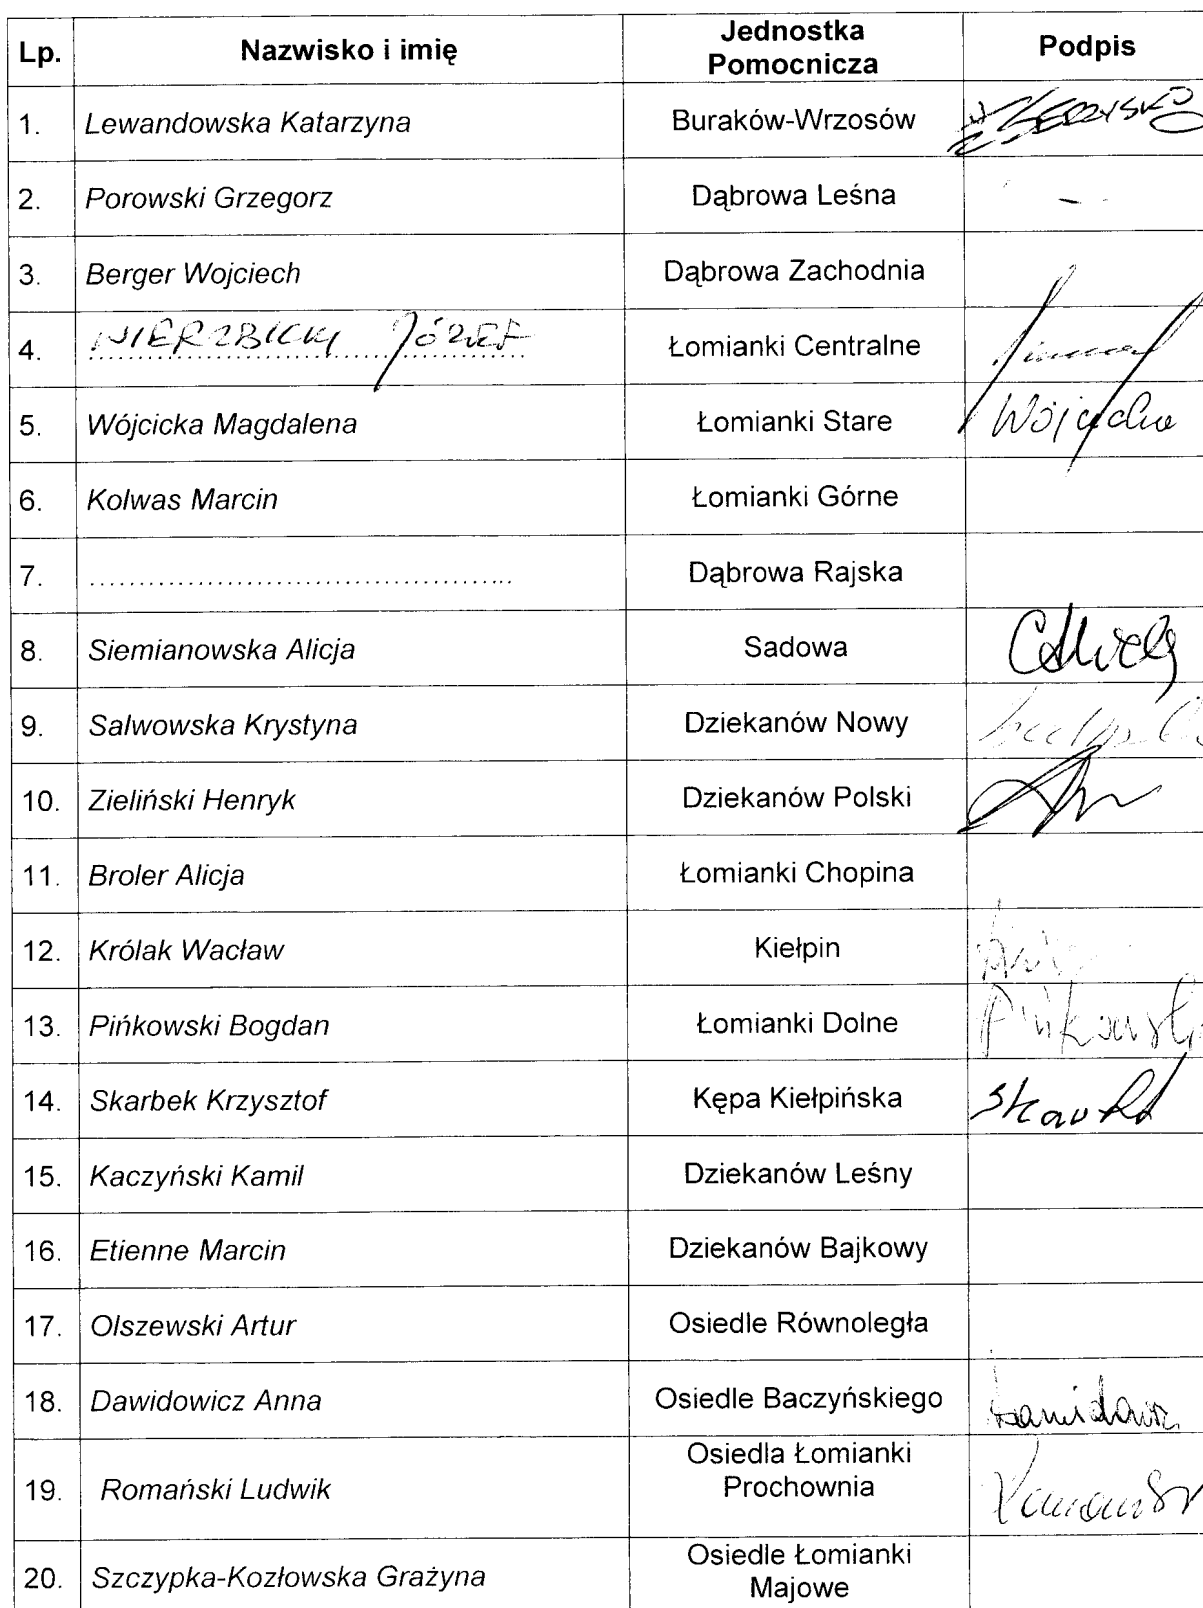 Lp. Nazwisko i imię Jednostka Pomocnicza Podpis
1. Lewandowska Katarzyna Buraków-Wrzosów
2. Porowski Grzegorz Dąbrowa Leśna -
3. Berger Wojciech Dąbrowa Zachodnia
4. WIERZBICKI JÓZEF Łomianki Centralne
5. Wójcicka Magdalena Łomianki Stare Wójcicka
6. Kolwas Marcin Łomianki Górne
7. .......................................... Dąbrowa Rajska
8. Siemianowska Alicja Sadowa
9. Salwowska Krystyna Dziekanów Nowy
10. Zieliński Henryk Dziekanów Polski
11. Broler Alicja Łomianki Chopina
12. Królak Wacław Kiełpin
13. Pińkowski Bogdan Łomianki Dolne Pińkowski
14. Skarbek Krzysztof Kępa Kiełpińska
15. Kaczyński Kamil Dziekanów Leśny
16. Etienne Marcin Dziekanów Bajkowy
17. Olszewski Artur Osiedle Równoległa
18. Dawidowicz Anna Osiedle Baczyńskiego
19. Romański Ludwik Osiedla Łomianki Prochownia
20. Szczypka-Kozłowska Grażyna Osiedle Łomianki Majowe